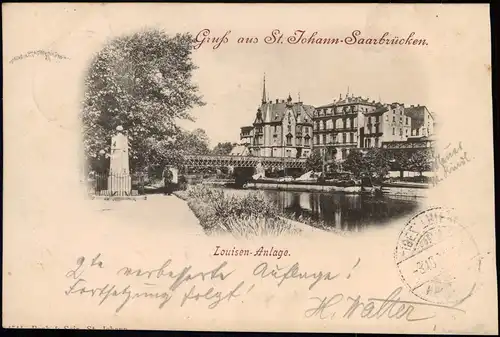 Gruß aus St. Johann-Saarbrücken.
Louisen-Anlage.
2te verbesserte Auflage!
Fortsetzung folgt!
H. Walter